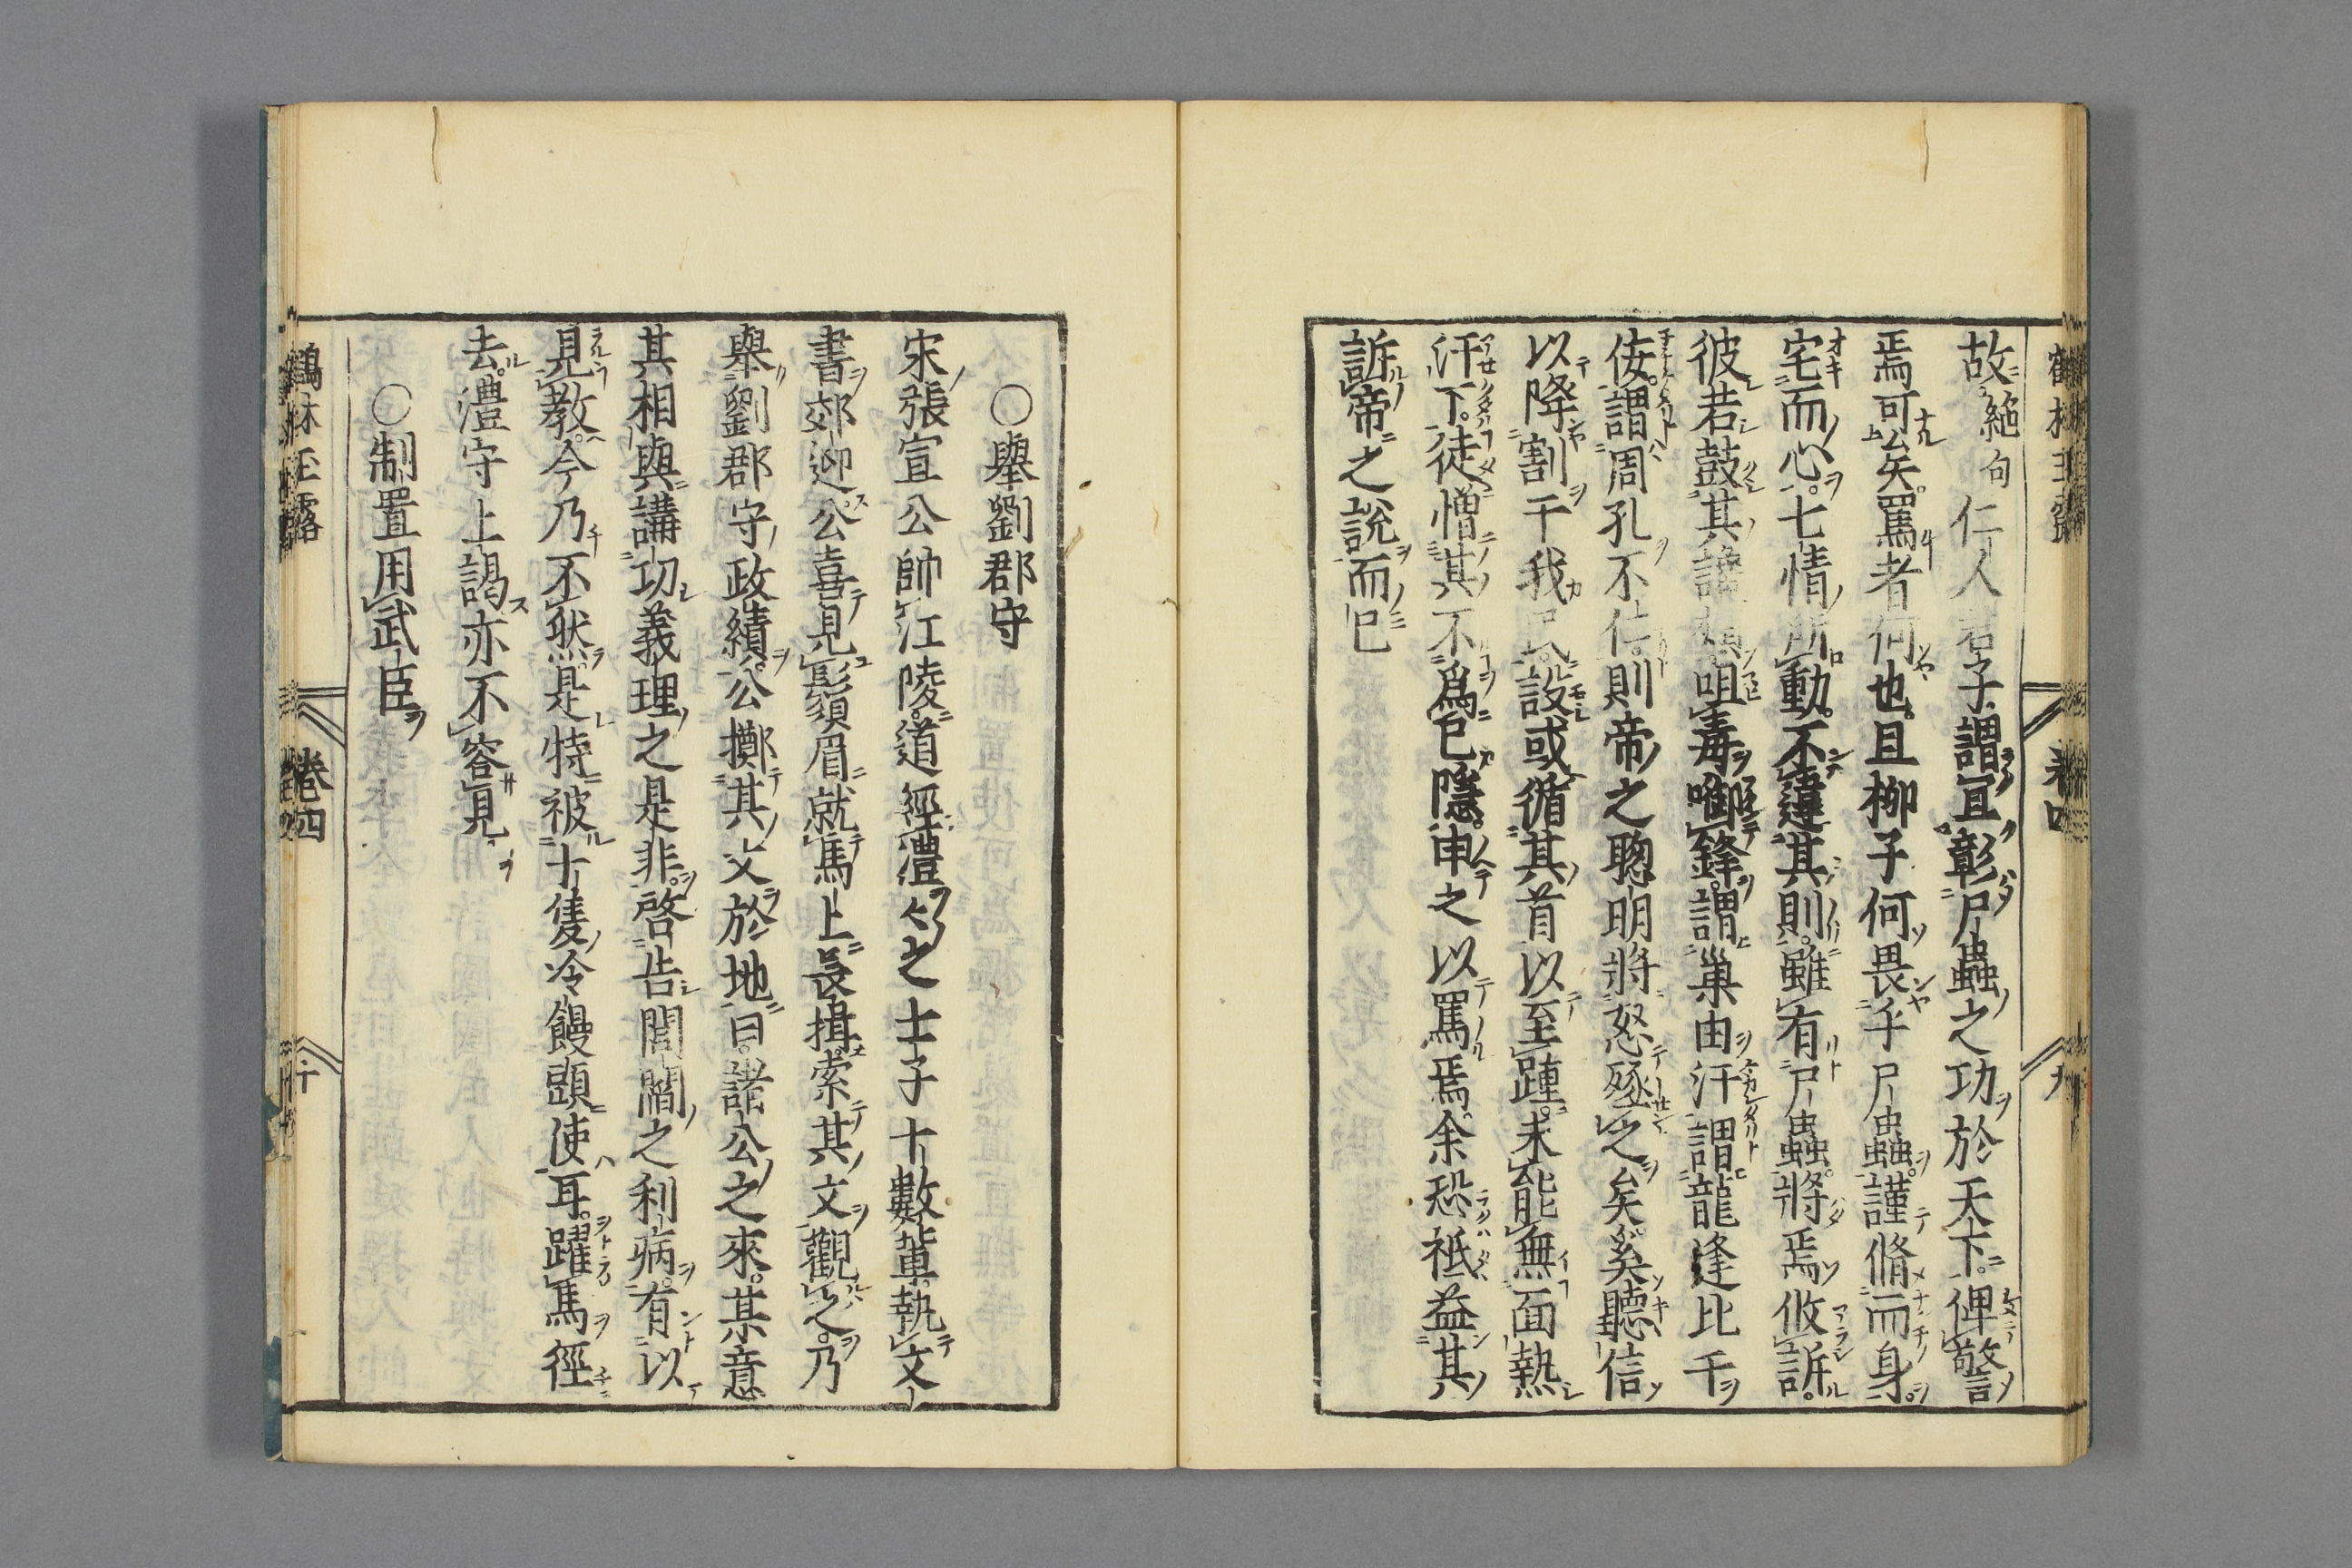 故絕句仁人君子謂宜彰尸蟲之功於天下俾警
焉可矣罵者何也且柳子何畏乎尸蟲謹脩而身
宅而心七情所動不違其則雖有尸蟲將焉攸訴
彼若鼓其讒頰咀毒啣鋒謂巢由汙謂龍逢比干
佞謂周孔不仁則帝之聰明將怒殛之矣奚聽信
以降割于我民設或循其首以至踵未能無面熱
汗下徒憎其不爲己隱申之以罵焉余恐祗益其
訴帝之說而已
○舉劉郡守
宋張宣公帥江陵道經澧々之士子十數輩執文
書郊迎公喜見鬚眉就馬上長揖索其文觀之乃
舉劉郡守政績公擲其文於地曰諸公之來某意
其相與講切義理之是非啓告閭閻之利病有以
見教今乃不然是特被十隻冷饅頭使耳躍馬徑
去澧守上謁亦不容見
○制置用武臣
鶴林玉露 卷四 十